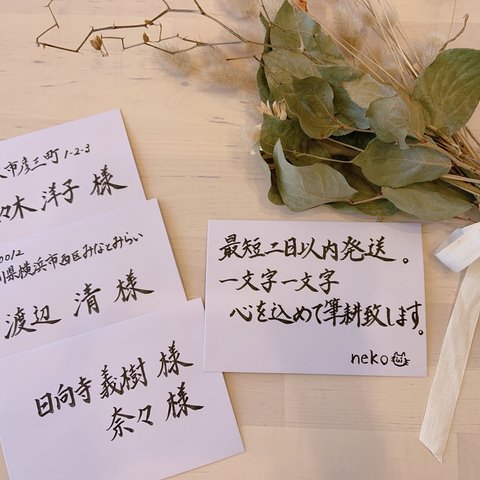 市彦三町1-2-3
々木 洋子 様
0012
県横浜市西区みなとみらい
渡辺 清 様
日向寺 義樹 様
奈々 様
最短二日以内発送。
一文字一文字
心を込めて筆耕致します。
neko